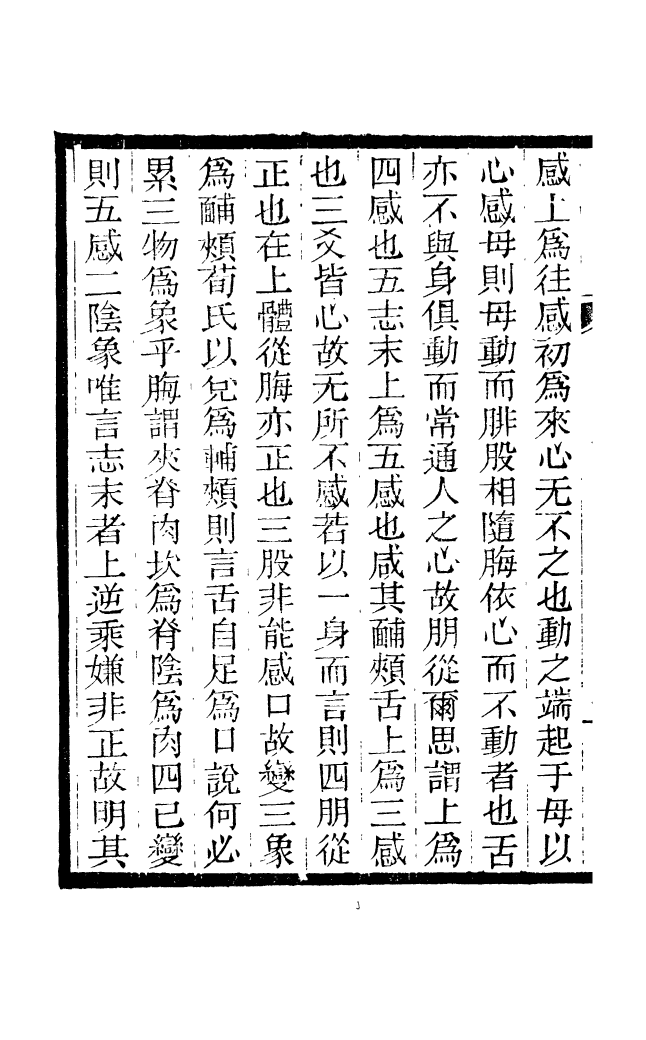 感上爲往感初爲來心无不之也動之端起于母以
心感母則母動而腓股相隨脢依心而不動者也舌
亦不與身俱動而常通人之心故朋從爾思謂上爲
四感也五志末上爲五感也咸其酺頰舌上爲三感
也三爻皆心故无所不感若以一身而言則四朋從
正也在上體從脢亦正也三股非能感口故變三象
爲酺頰荀氏以兌爲輔頰則言舌自足爲口說何必
累三物爲象乎脢謂夾脊肉坎爲脊陰爲肉四已變
則五感二陰象唯言志末者上逆乘嫌非正故明其